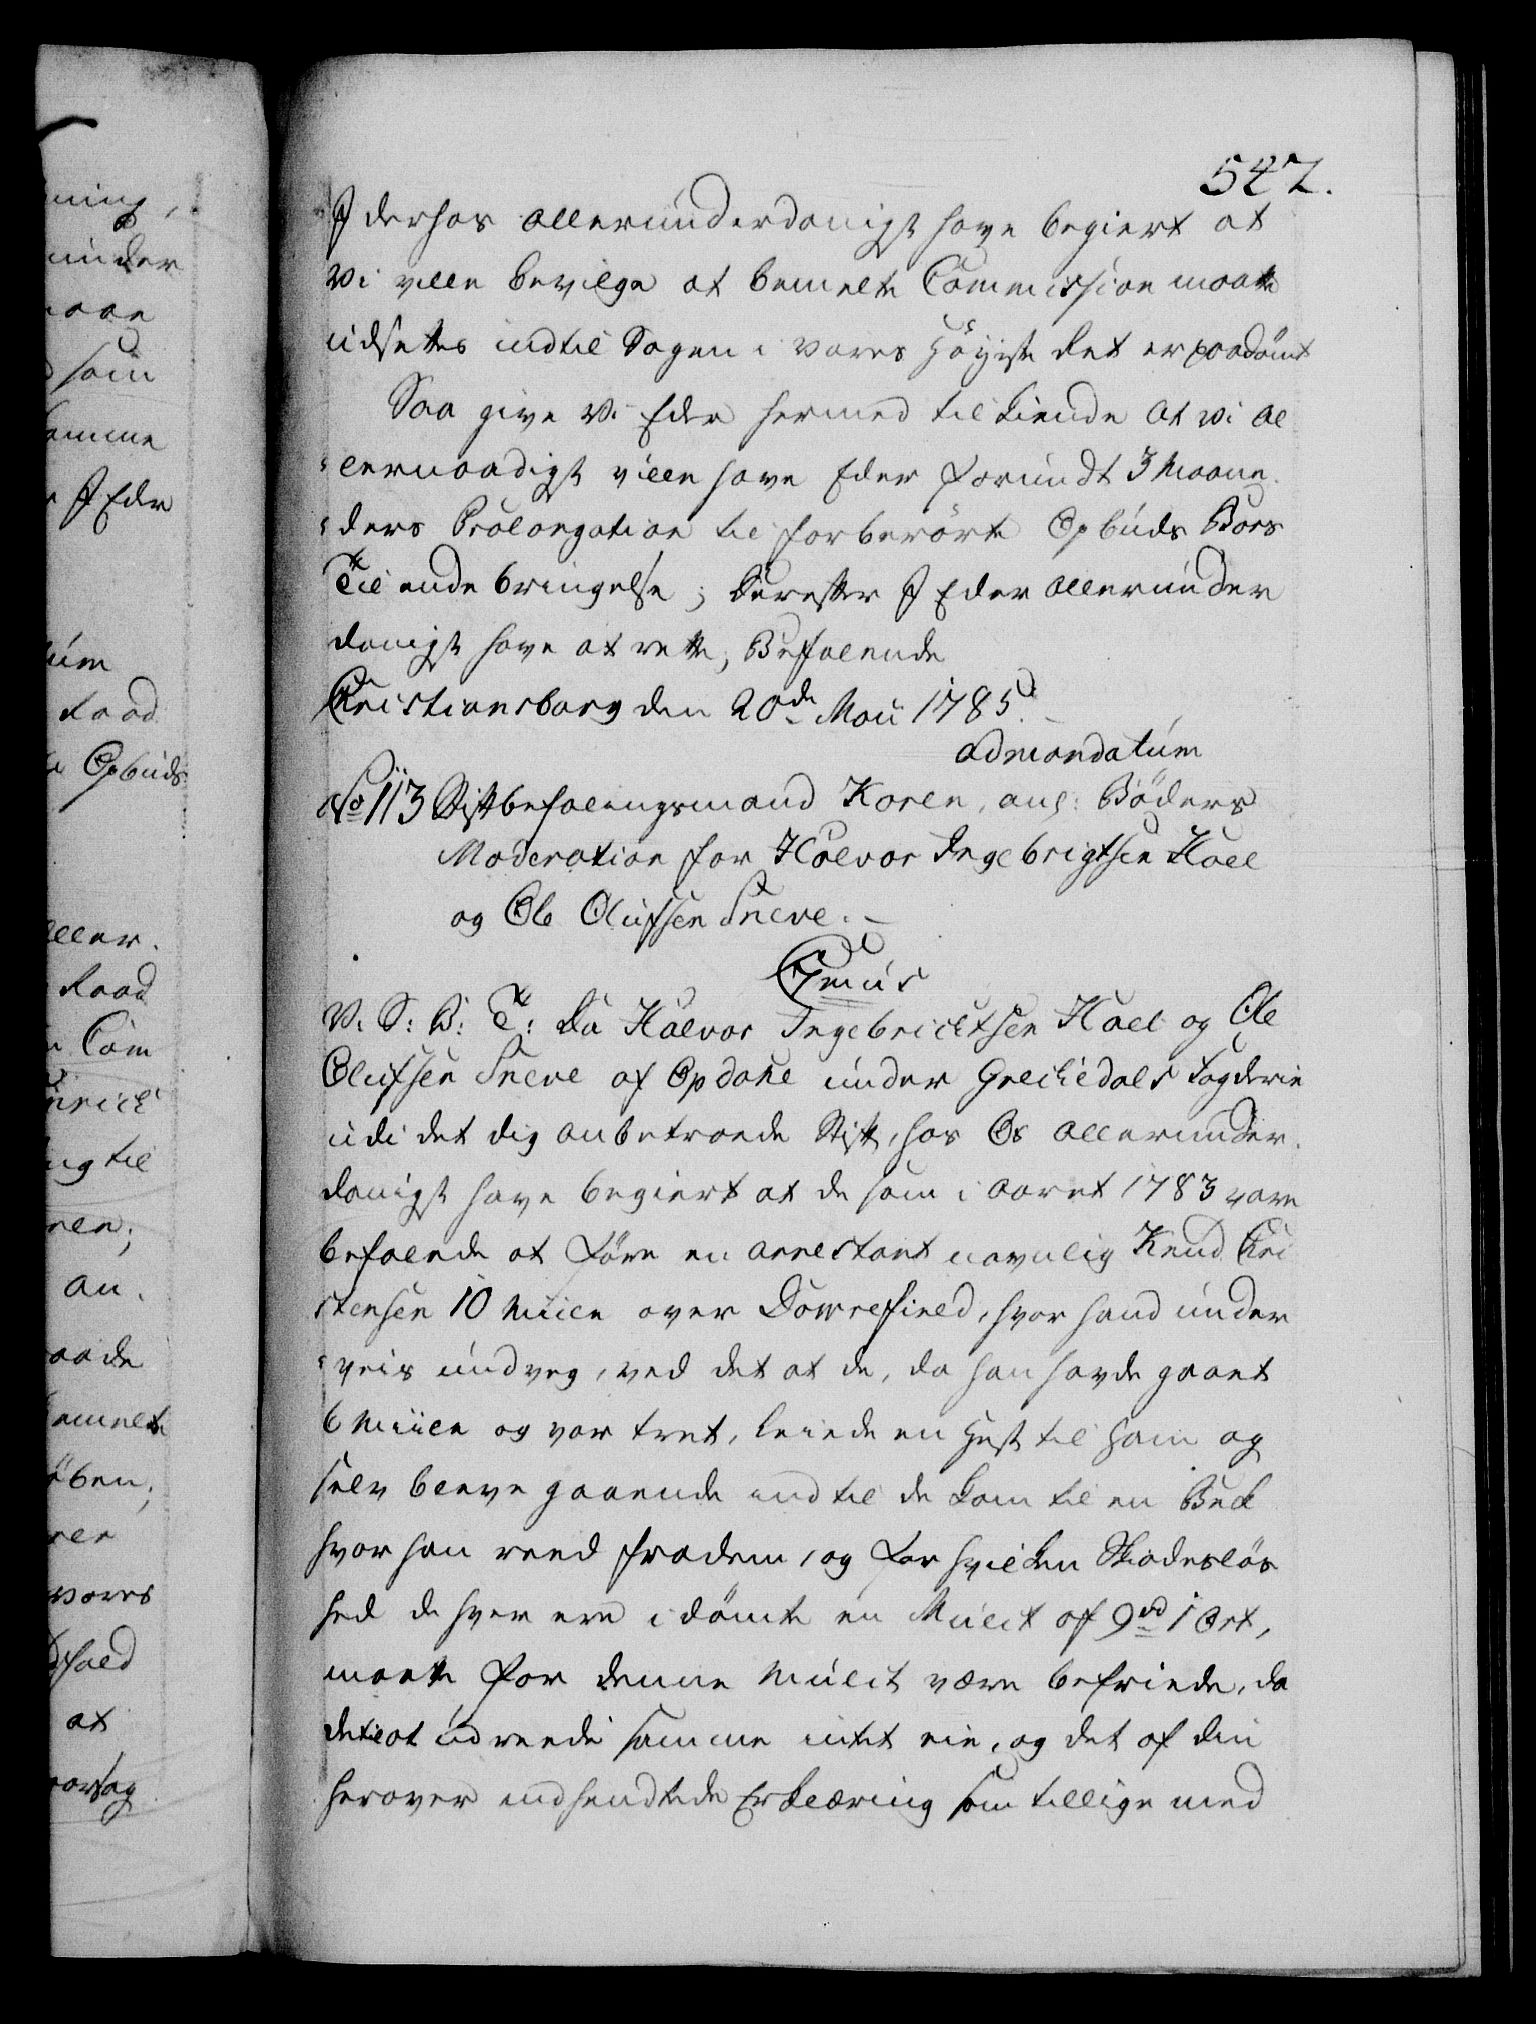 547.
I derhos allerunderdanigst have begiert at
Vi ville bevilge at bemelte Commission maatte
udsettes indtil Sagen i vores Höyeste Ret er paadömt
Saa give Vi Eder hermed tilkiende at Vi al
lernaadigst ville have Eder forundt 3 Maane
ders Prolongation til forberörte Opbuds Boes
Tilendebringelse; Derefter I Eder allerunder
danigst have at rette, Befalende
Christiansborg den 20de Maii 1785.
admandatum
No 113 Stiftbefalingsmand Koren, ang: Böders
Moderation for Halvor Ingebrigtsen Hoel
og Ole Olufsen Sneve.
Gmus
V. S: B: T: Da Halvor Ingebrichtsen Hoel og Ole
Olufsen Sneve af Opdahl under Guldalens Fogderie
udi det dig anbetroede Stift, hos Os allerunder
danigst have begiert at de som i Aaret 1783 vare
befalede at före en Arrestant navnlig Knud Chri
stensen 10 Miile over Dowrefield, hvor hand under
veis undveg, ved det at de, da han havde gaaet
6 Miile og var træt, leiede en Hest til ham og
selv bleve gaaende indtil de kom til en Bek
hvor han reed fra dem, og for hvilken Skiödeslös
hed de hver ere idömte en Mulct af 9rd 1 Ort,
maatte for denne Mulct være befriede, da
de til at udreede samme intet eie, og det af din
herover indsendte Erklæring som tillige med